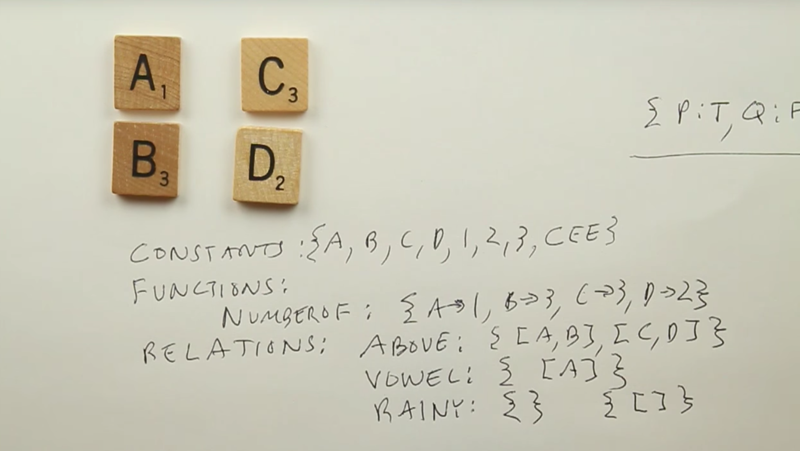 A1 C3
B3 D2
{ P:T, Q:F
CONSTANTS:{A, B, C, D, 1, 2, 3, CEE}
FUNCTIONS:
NUMBEROF: {A→1, B→3, C→3, D→2}
RELATIONS: ABOVE: {[A,B],[C,D]}
VOWEL: {[A]}
RAINY: {} {[]}